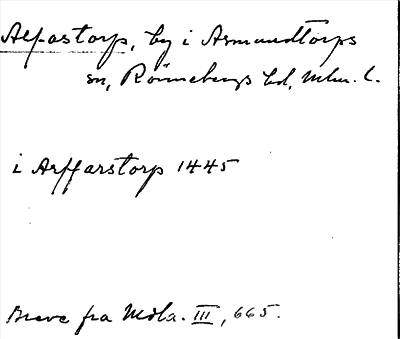 Alfastorp, by i Asmundtorps
sn, Rönnebergs hd, Mlm. l.
i Arffarstorp 1445
Breve fra Mdla. III, 665.